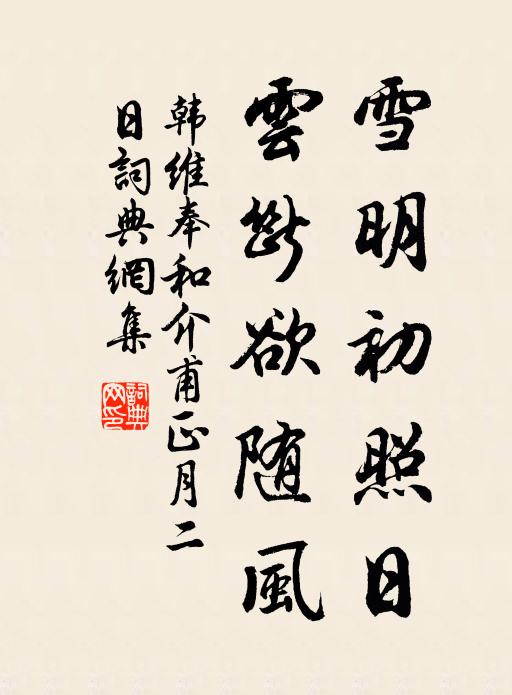 雪明初照日
雲斷欲随風
韩維奉和介甫正月二
日詞典網集
詞典
网印